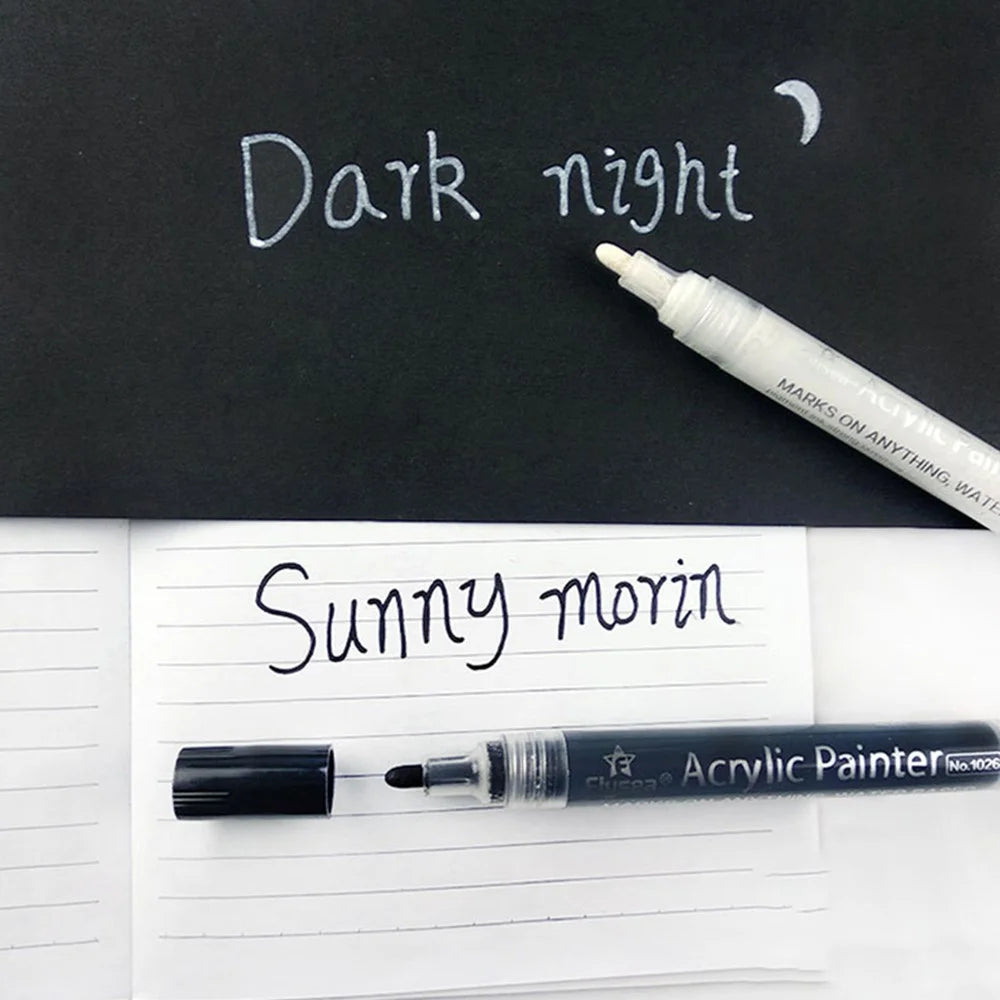 Dark night
Acrylic Pai
MARKS ON ANYTHING, WATE
Sunny morin
Flysea® Acrylic Painter No.1026